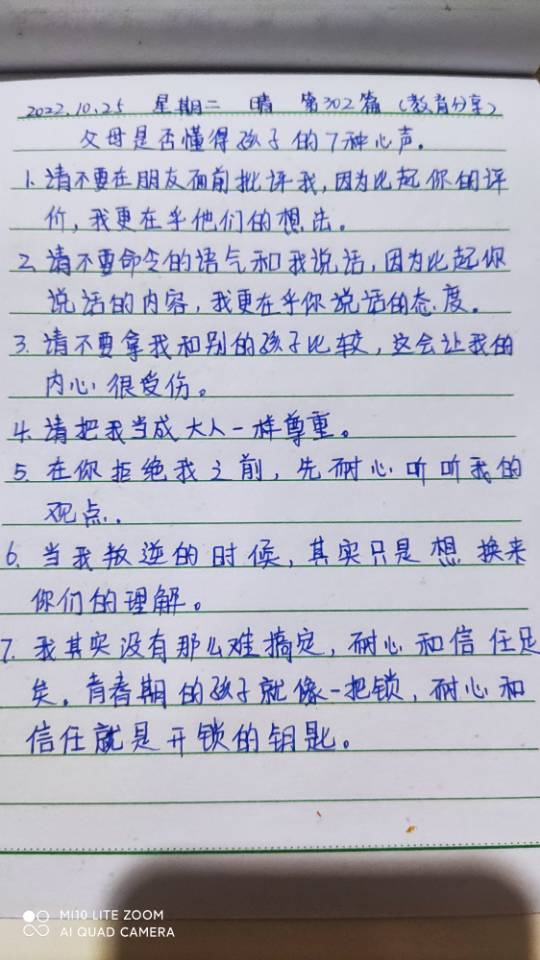 2022.10.25 星期二 晴 第302篇（教育分享）
父母是否懂得孩子的7种心声。
1. 请不要在朋友面前批评我，因为比起你的评
价，我更在乎他们的想法。
2. 请不要命令的语气和我说话，因为比起你
说话的内容，我更在乎你说话的态度。
3. 请不要拿我和别的孩子比较，这会让我的
内心很受伤。
4. 请把我当成大人一样尊重。
5. 在你拒绝我之前，先耐心听听我的
观点。
6. 当我叛逆的时候，其实只是想换来
你们的理解。
7. 我其实没有那么难搞定，耐心和信任足
矣。青春期的孩子就像一把锁，耐心和
信任就是开锁的钥匙。
MI10 LITE ZOOM
AI QUAD CAMERA